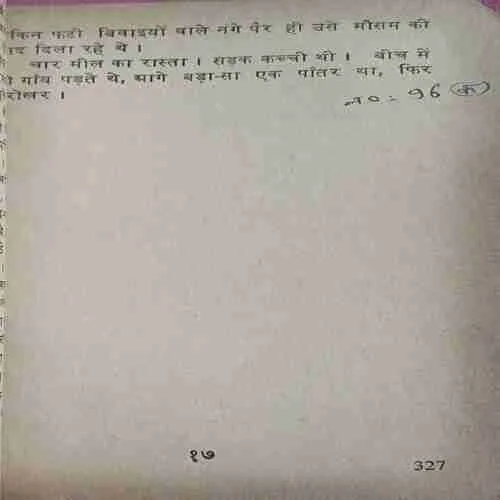 किन फटी बिवाइयों वाले नंगे पैर ही उसे मौसम की
याद दिला रहे थे ।
चार मील का रास्ता । सड़क कच्ची थी । बीच में
गाँव पड़ते थे, आगे बड़ा-सा एक पाँतर था, फिर
रोखर ।
no = 96 क
१७
327